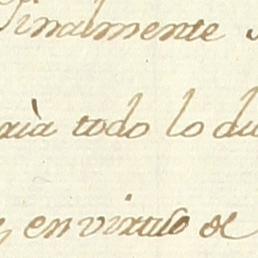 Finalmente
ria todo lo du
en virtud de